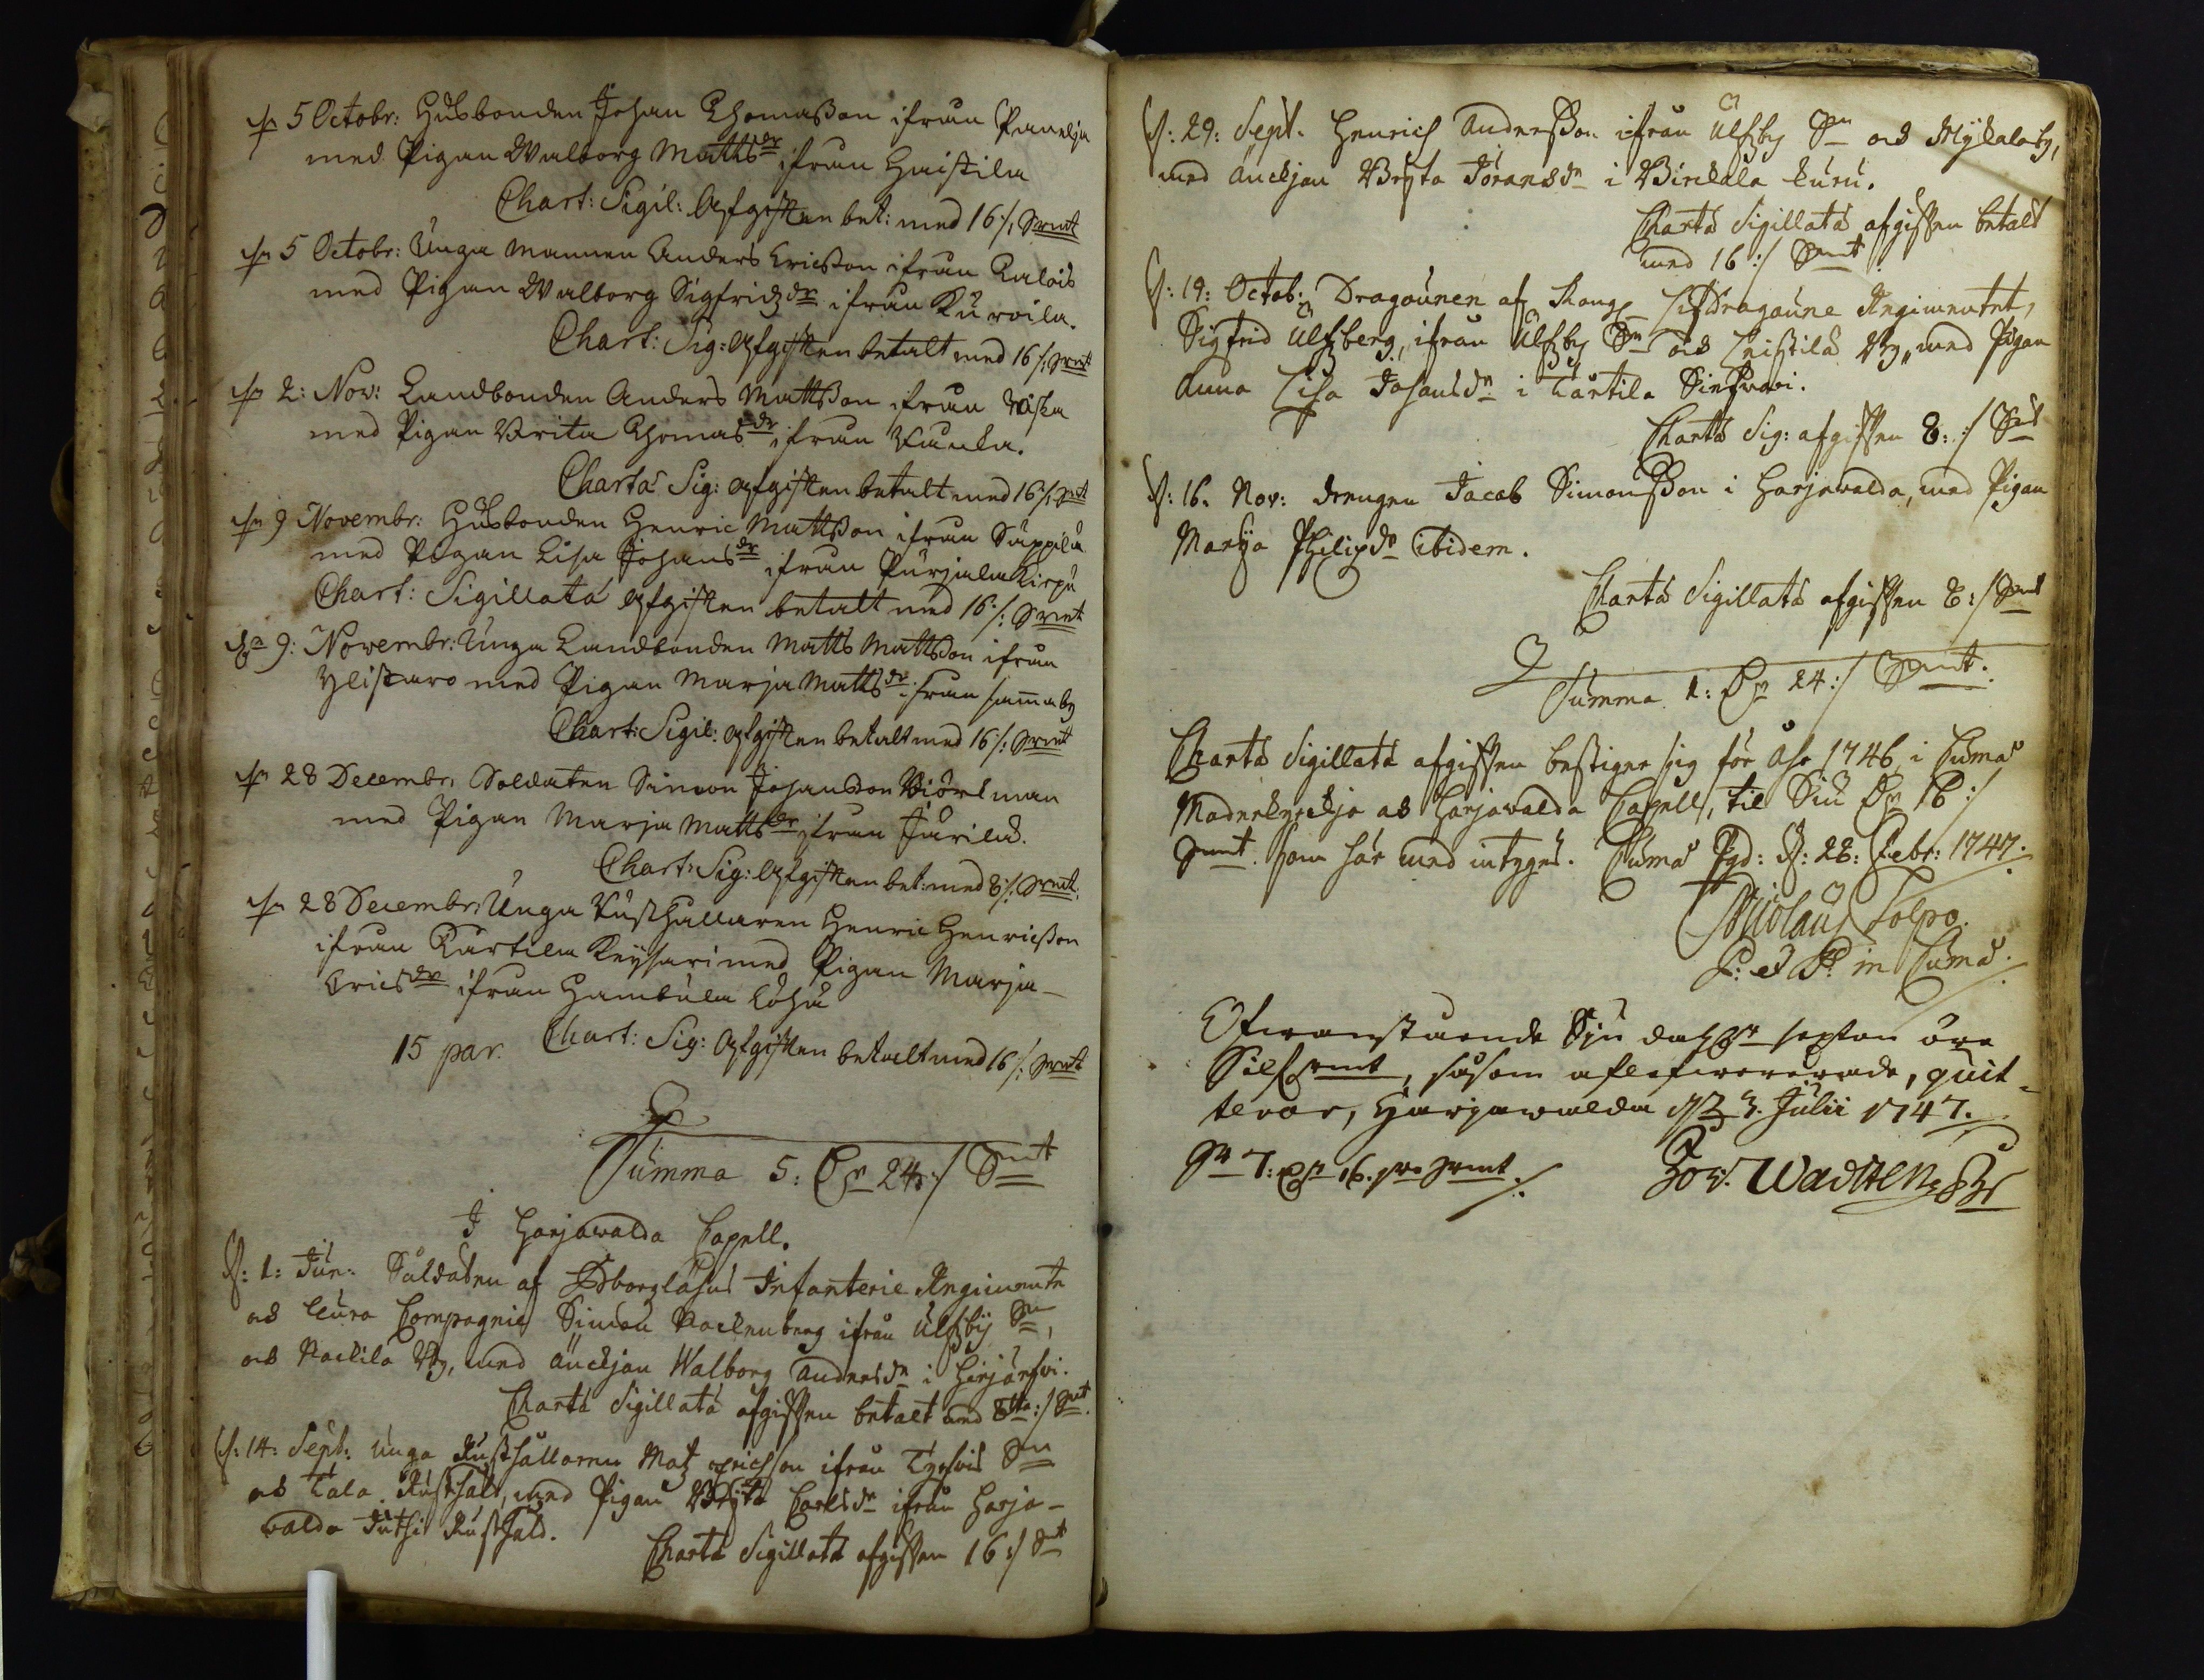 5 Octobr: Husbonden Johan Thomasson ifrån Panelja
med Pigan Walborg Mattsdr ifrån Haistila
Chart: Sigil: Afgiften bet: med 16 /: Srmt
5 Octobr: Unga Mannen Anders Ericsson ifrån Ralois
med Pigan Walborg Sigfridzdr ifrån Kuroila.
Chart: Sig: Afgiften betalt med 16 /: Srmt
2: Nov: Landbonden Anders Mattsson ifrån
med Pigan Brita Thomasdr ifrån
Charta Sig: Afgiften betalt med 16 /: Smt
9 Novembr: Husbonden Henric Mattsson ifrån Säppilä
med Pigan Lisa Johansdr ifrån Purjala Kirpu
Chart: Sigillatá Afgiften betalt med 16 /: Srmt
9: Novembr: Unga Landbonden Matts Mattsson ifrån
Ylistaro med Pigan Marja Mattsdr ifrån samma by
Chart: Sigil: Afgiften betalt med 16 /: Srmt
28 Decembr: Soldaten Simon Johansson Biörkman
med Pigan Marja Mattsdr ifrån Jurila.
Chart: Sig: Afgiften bet: med 8 /: Srmt.
28 Decembr: Unga Rusthållaren Henric Henricsson
ifrån Turtila Keysari med Pigan Marja
Ericsdr ifrån Hambula Låhu
15 par. Chart: Sig: Afgiften betalt med 16 /: Srmt
Summa 5: Dr 24 :/ Smt
I Harjawalda Capell.
d: 1: Jun: Soldaten af Biörneborgs Infanterie Regimente
och Eura Compagnie Simon Nackenberg ifrån Ulfsby Sn,
och Nackila By, med änckjan Walborg Andersdr i Hirjärfvi.
Charta Sigillata afgiften betalt med 8tta :/ Smt.
d: 14: Sept: Unga Rusthållaren Matz Erichson ifrån Tyrfvis Sn
och Tala Rusthåld, med Pigan Brijta Carlsdr ifrån Harja-
valda Juthi Rusthåld.
Charta Sigillata afgiften 16 :/ Smt
d: 29: Sept. Henrich Andersson ifrån Ulfsby Sn och Myckelaby,
med änckjan Brijta Göransdr i Pirckala kuru.
Charta Sigillata afgiften betalt
med 16 :/ Smt
d: 19: Octob: Dragounen af Kongl Lifdragoune Regimentet,
Sigfrid Ulfsberg, ifrån Ulfsby Sn och Leistila By, med Pigan
Anna Lisa Johansdr i Tårtila Sinervoi.
Charta Sig: afgiften 8: :/ Smt
d: 16. Nov: drengen Jacob Simonsson i Harjavalda, med Pigan
Marija Philipdr ibidem.
Charta Sigillata afgiften 8 :/ Smt
Summa 1: Dr 24 :/ Smt.
Charta Sigillata afgiften bestiger sig för Åhr 1746 i Cumo
Moderkyrckja och Harjavalda Capell, til Siu Dr 16 :/
Smt. som här med intyges. Cumo Pgd: d: 28: Febr: 1747.
Nicolaus Polpo.
P: et Pt: in Cumo.
Ofwanstående Siu dahlr sexton öre
Silfrmt, såsom aflefwererade, quit-
terar, Harjawalda d 3. Julii 1747.
Sr 7: dr 16. öre Srmt. Jos: Wadsten